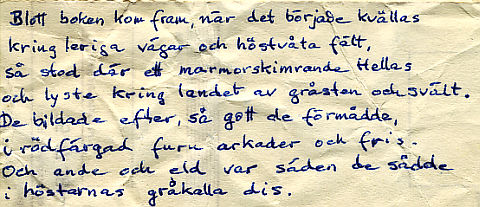 Blott boken kom fram, när det började kvällas
kring leriga vägar och höstvåta fält,
så stod där ett marmorskimrande Hellas
och lyste kring landet av gråsten och svält.
De bildade efter, så gott de förmådde,
i rödfärgad furu arkader och fris.
Och ande och eld var säden de sådde
i höstarnas gråkalla dis.